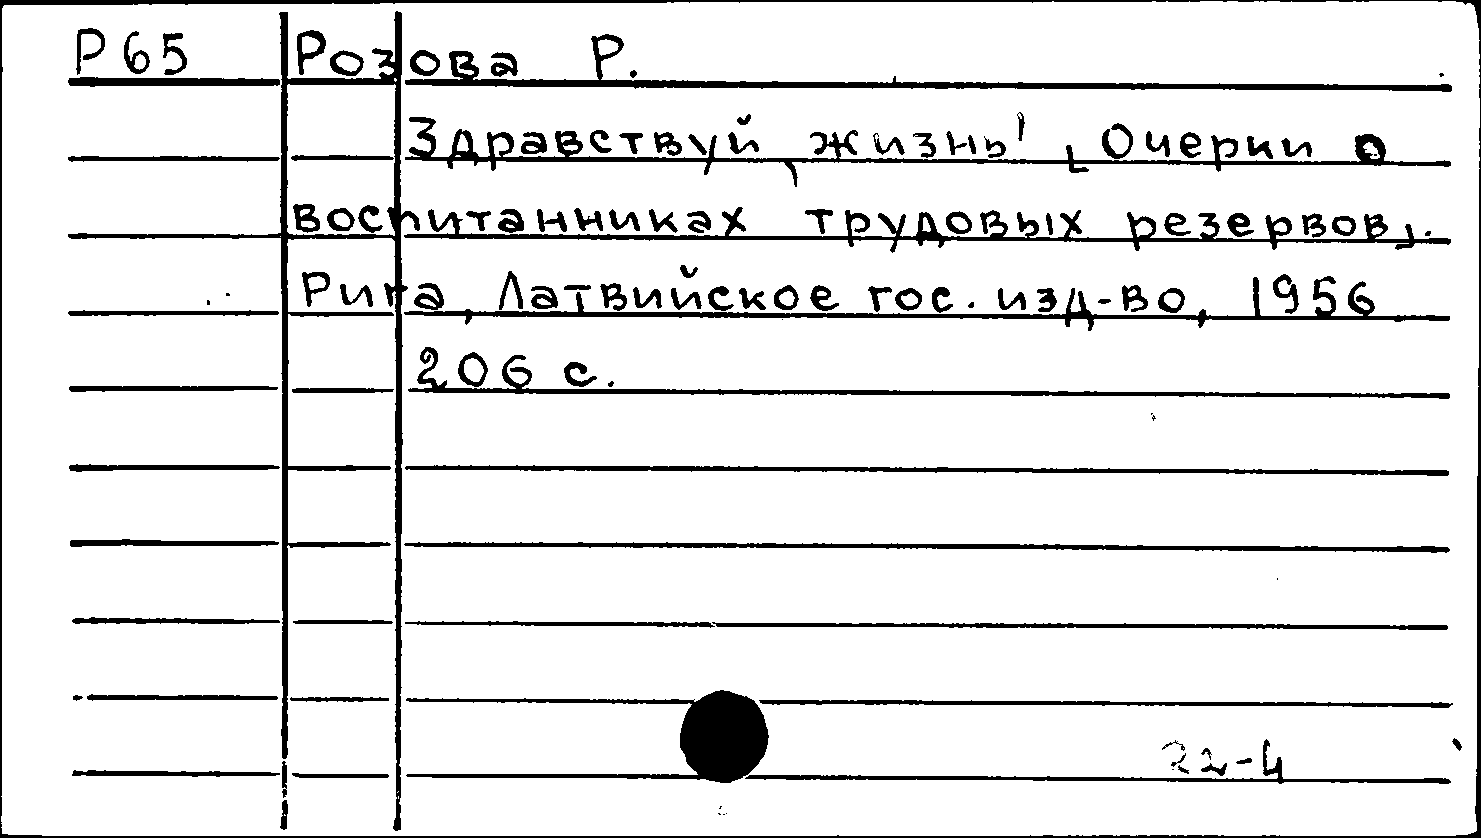 Р65 Розова Р.
Здравствуй, жизнь! [Очерки о
воспитанниках трудовых резервов].
Рига, Латвийское гос. изд-во, 1956
206 с.
22-4